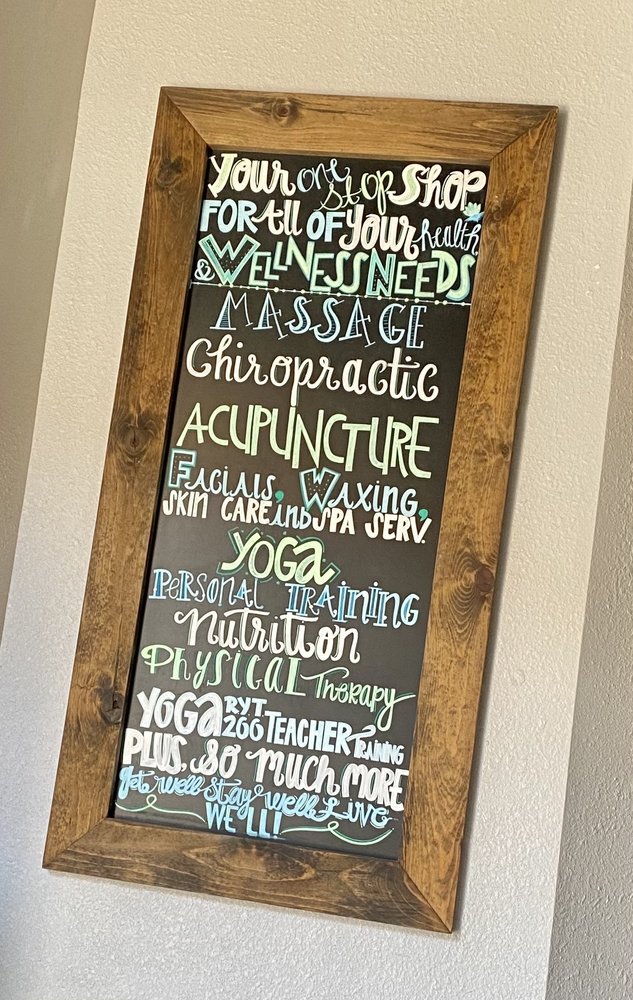 Your one stop Shop
FOR All OF Your health
& WELLNESS NEEDS
MASSAGE
Chiropractic
ACUPUNCTURE
Facials, Waxing,
SKIN CARE and SPA SERV.
YOGA
PERSONAL TRAINING
Nutrition
PHYSICAL Therapy
YOGA RYT 200 TEACHER TRAINING
PLUS, SO Much MORE
get well stay well Live
WELL!